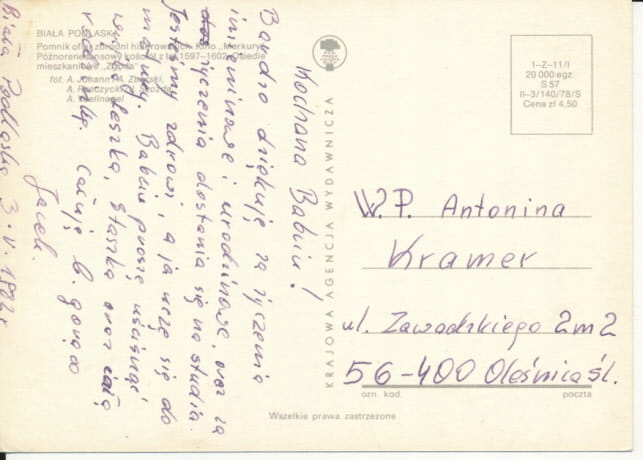 BIAŁA PODLASKA
Pomnik ofiar zbrodni hitlerowskich. Kino „Merkury”.
Późnorenesansowy kościół z lat 1597–1602. Osiedle
mieszkaniowe
fot. A. Johann, A. Zborski,
A. Stelmach
Biała Podlaska 3.V.1982r
Kochana Babciu!
Bardzo dziękuję za życzenia
imieninowe i urodzinowe, oraz za
życzenia dostania się na studia.
Jesteśmy zdrowi, a ja uczę się do
matury. Babciu proszę uściskaj
Leszka, Staszka oraz całą
Całuję b. gorąco
Jacek.
KRAJOWA AGENCJA WYDAWNICZA
1–Z–11/I
20 000 egz.
S 57
II–3/140/78/S
Cena zł 4.50
W.P. Antonina
Kramer
ul. Zawadzkiego 2 m 2
56-400 Oleśnica śl.
ozn. kod. poczta
Wszelkie prawa zastrzeżone